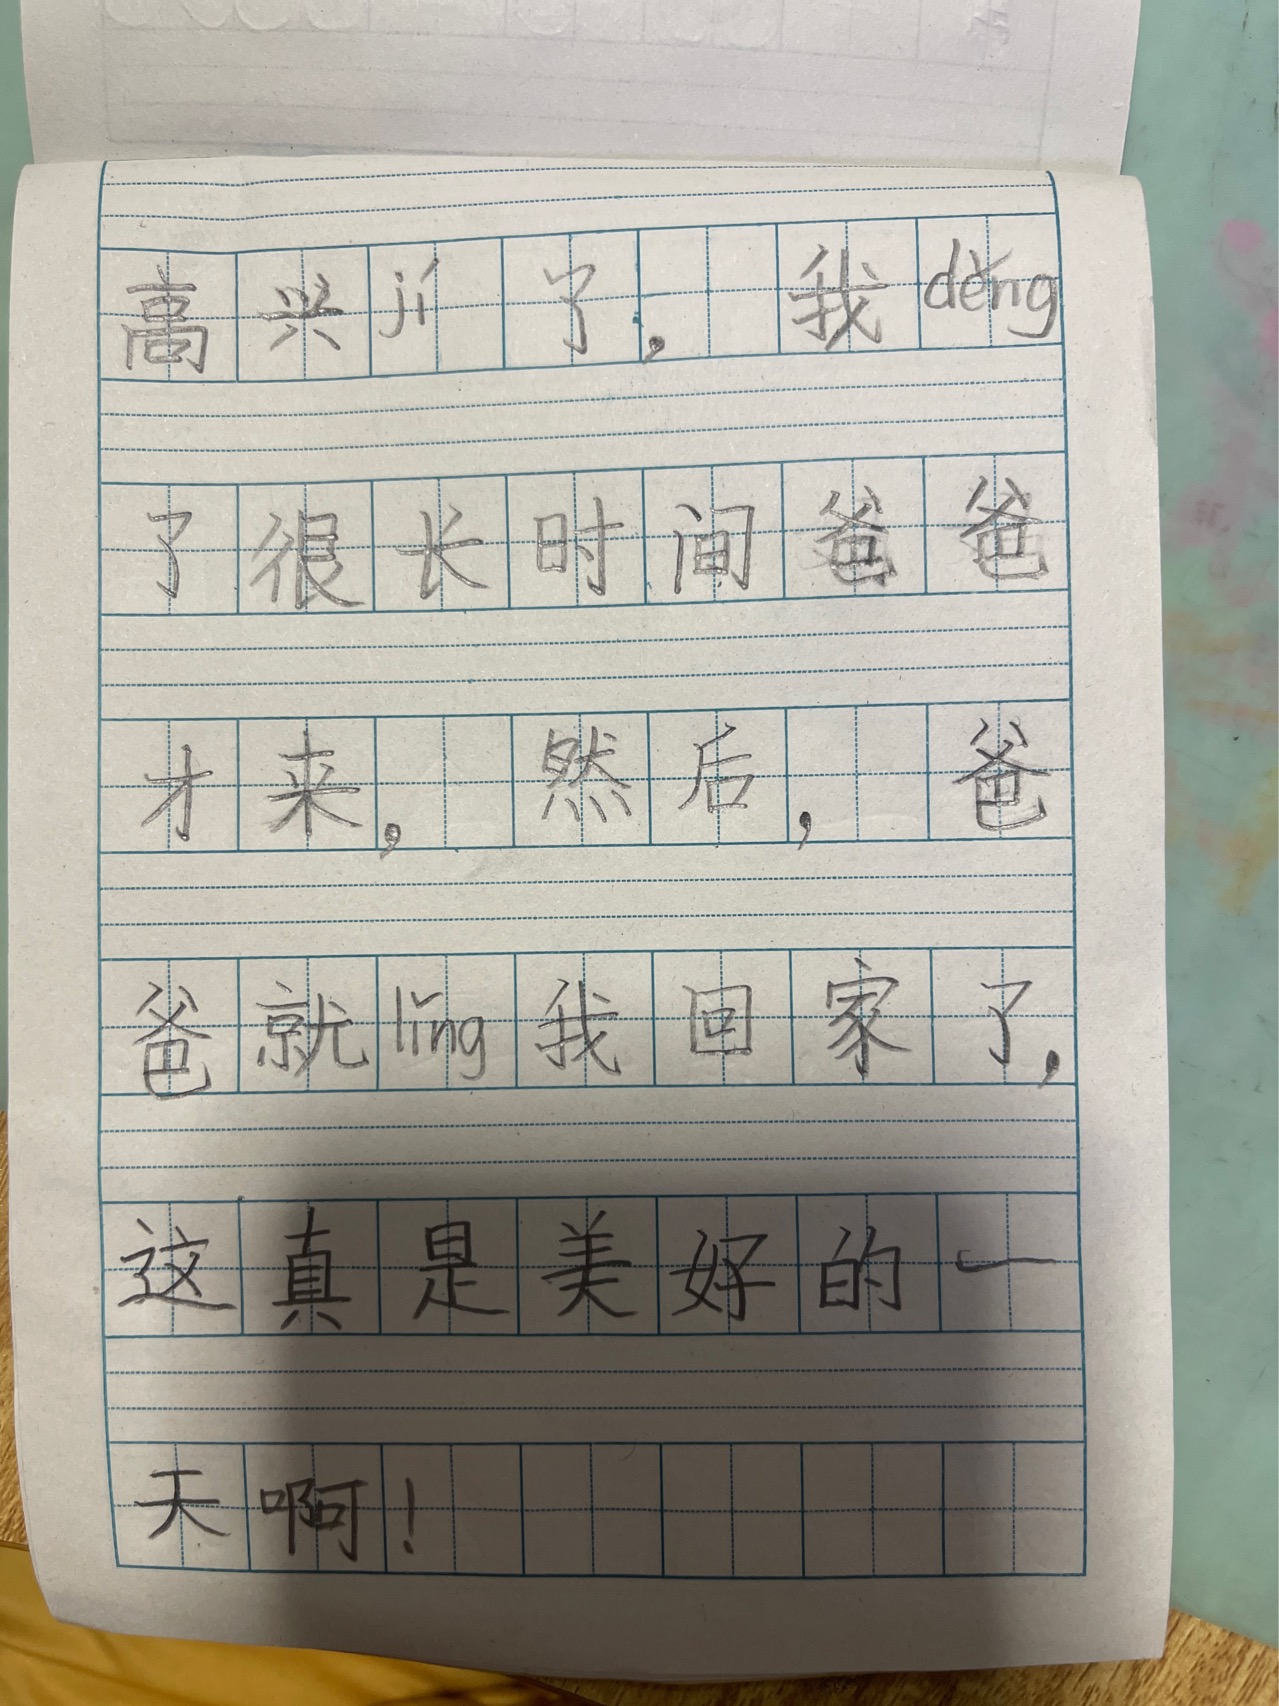 高兴jí了，我děng
了很长时间爸爸
才来，然后，爸
爸就lǐng我回家了，
这真是美好的一
天啊！